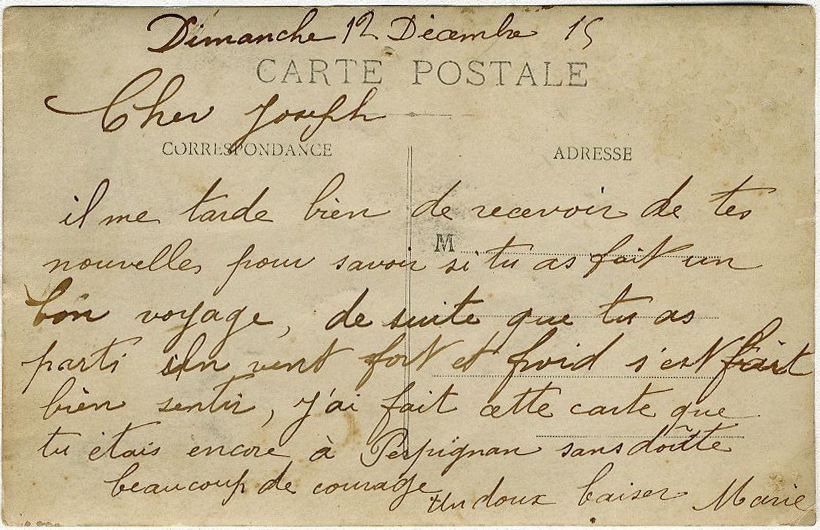 Dimanche 12 Décembre 15
CARTE POSTALE
Cher Joseph
CORRESPONDANCE
ADRESSE
il me tarde bien de recevoir de tes
M
nouvelles pour savoir si tu as fait un
bon voyage, de suite que tu as
parti un vent fort et froid s'est fait
bien sentir, j'ai fait cette carte que
tu étais encore à Perpignan sans doûtte
beaucoup de courage Un doux baiser Marie